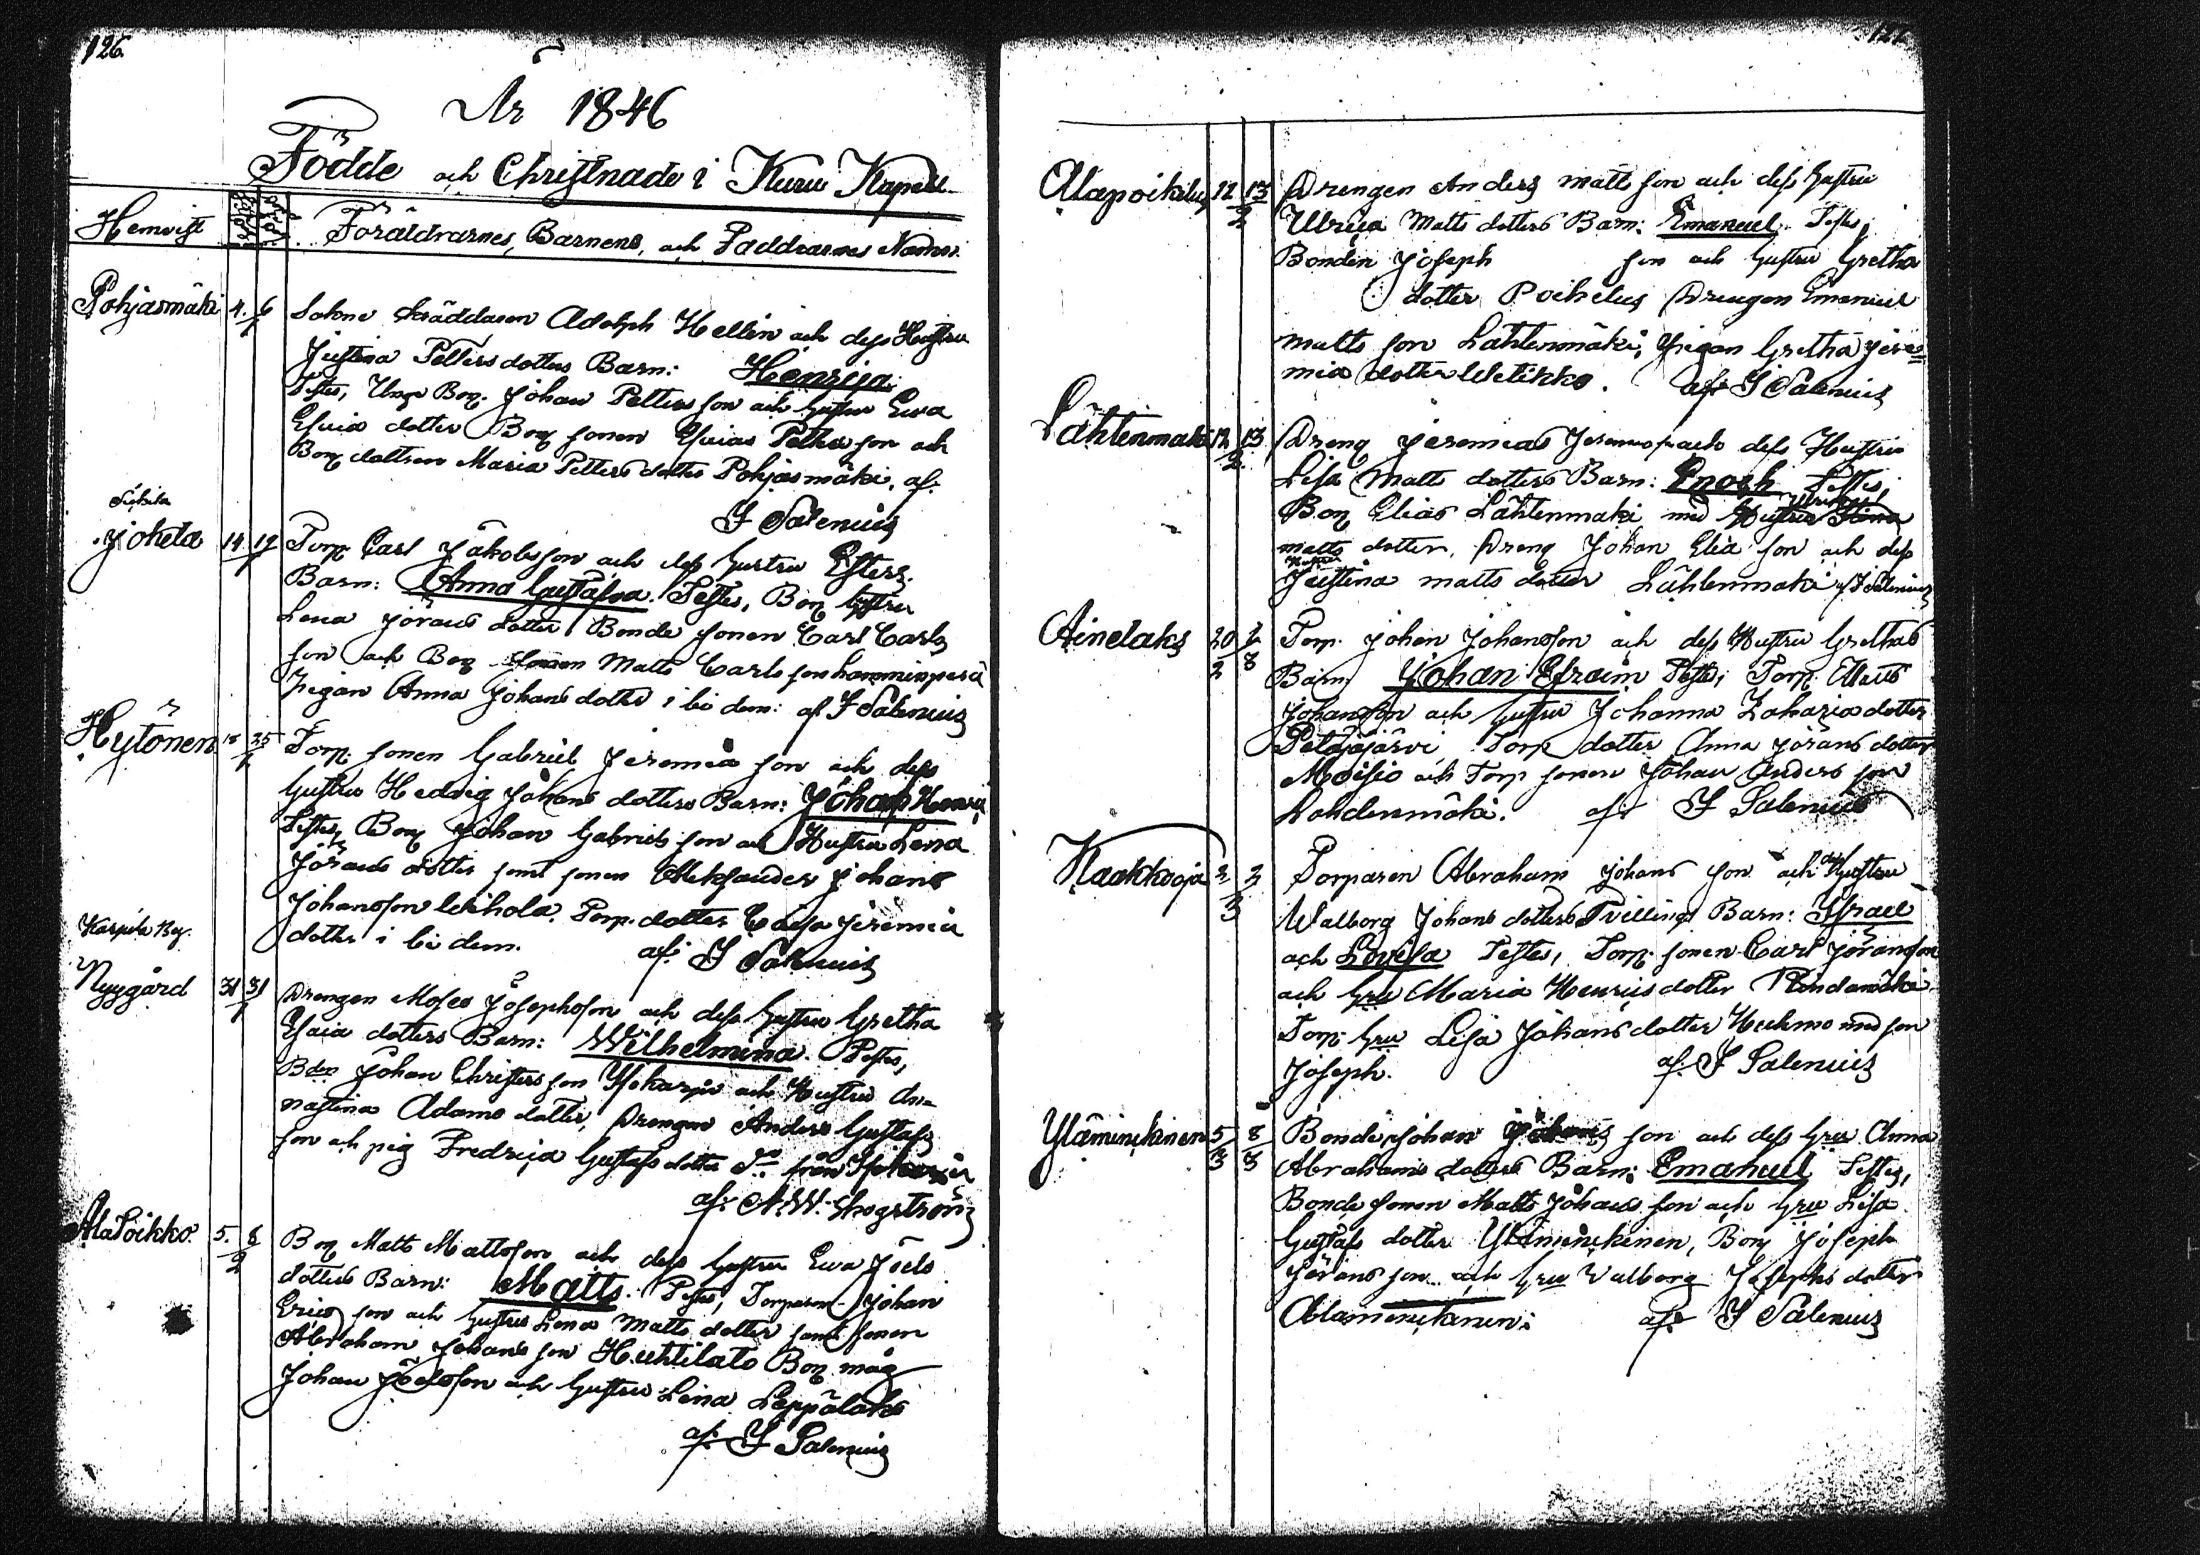 126.
År 1846
Födde och Christnade i Kuru Kapell
Hemvist
Föräldrarnes, Barnens, och Faddrarnes Namn.
Pohjasmäki 4. 6 Sokne Skräddaren Adolph Hellin och dess Hustru
1
Justina Petters dotters Barn: Henrica.
Testes, Unge Bon. Johan Petters son och hustru Ewa
Esaia dotter Bon sonen Esaias son och
Bon dottren Maria Petters dotter Pohjasmäki. af.
I Salenius
Jokela 14 17 Torp. Carl Jakobsson och dess hustru Esters.
Barn: Anna Gustafva. Testes, Bon hustru
Lena Jörans dotter Bonde sonen Carl Carls
son och Bon sonen Matts Carls son
Pigan Anna Johans dotter i bi dem: af I Salenius
Hytönen 25 Torp. sonen Gabriel Jeremia son och dess
hustru Hedvig Johans dotters Barn: Johan
Testes, Bon Johan Gabriels son och Hustru Lena
Jörans dotter samt sonen Aleksander Johans
Johansson Torp. dotter Caisa Jeremia
dotter i bi dem. af. I Salenius
Karpila By.
Nygård 31 31 Drengen Moses Josephsson och dess hustru Gretha
1
Esaia dotters Barn: Wilhelmina. Testes,
Bden Johan Christers son och Hustru An-
nastina Adams dotter, Drengen Anders Gustafs
son och pig Fredrica Gustafs dotter do från
af. A.W. Skogström
Ala Poikko. 5. 8 Bon Matts Mattsson och dess hustru Ewa Joels
2
dotters Barn: Matts. Testes, Torparen Johan
Erics son och hustru Lena Matts dotter samt sonen
Abraham Johans son Huhtilato Bon måg
Johan Joelsson och hustru Leina Leppälaks
af. I Salenius
Alapoikelus 12 13 Drengen Anders Matts son och dess hustru
2
Ulrica Matts dotters Barn: Emanuel. Testes;
Bonden Joseph son och hustru Gretha
dotter Poikelus Drengen Emanuel
Matts son Lähtenmäki, Pigan Gretha Jere=
mia dotter af I Salenius
Lähtenmäki 12 13 Dreng Jeremias och dess Hustru
2
Lisa Matts dotters Barn: Enoch Testes;
Bon Elias Lähtenmäki med Hustru
Matts dotter, Dreng Johan Elia son och dess
Hustru
Justina Matts dotter Lähtenmäki af I Salenius
Ainelaks 20 Torp. Johan Johansson och dess Hustru Grethas
2 3
Barn Johan Efraim Testes; Torp. Matts
Johansson och hustru Johanna Zakaria dotter
Petäjäjärvi Torp dotter Anna Jörans dotter
Moisio och Torp sonen Johan Anders son
Lohdenmäki. af I Salenius
Kaakkooja 2 2 Torparen Abraham Johans son och dess hustru
3
Walborg Johans dotters Tvillings Barn: Israel
och Lovisa Testes, Torp. sonen Carl Jöransson
och Hru Maria Henrics dotter
Torp. Hru Lisa Johans dotter med son
Joseph. af. I Salenius
Yläminckinen 5 8 Bonde Johan son och dess Hru Anna
3 3
Abrahams dotters Barn: Emanuel Testes,
Bonde sonen Matts Johans son och Hru Lisa
Gustafs dotter Yläminckinen, Bon Joseph
Jörans son och Hru Walborg Josephs dotter
Alaminckinen: af I Salenius